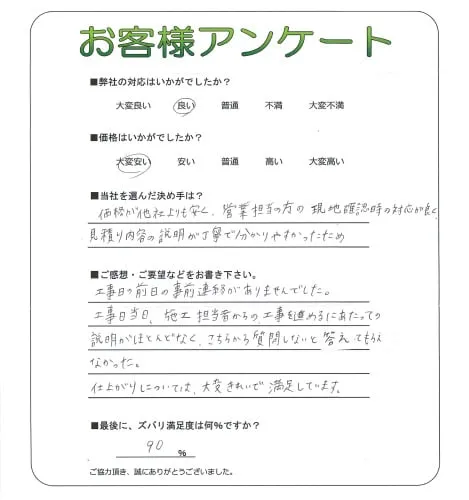 お客様アンケート
■弊社の対応はいかがでしたか？
大変良い 良い 普通 不満 大変不満
■価格はいかがでしたか？
大変安い 安い 普通 高い 大変高い
■当社を選んだ決め手は？
価格が他社よりも安く、営業担当の方の現地確認時の対応が良く
見積り内容の説明が丁寧で分かりやすかったため
■ご感想・ご要望などをお書き下さい。
工事日の前日の事前連絡がありませんでした。
工事日当日、施工担当者からの工事を進めるにあたっての
説明がほとんどなく、こちらから質問しないと答えてもらえ
なかった。
仕上がりについては、大変きれいで満足しています。
■最後に、ズバリ満足度は何%ですか？
90 %
ご協力頂き、誠にありがとうございました。